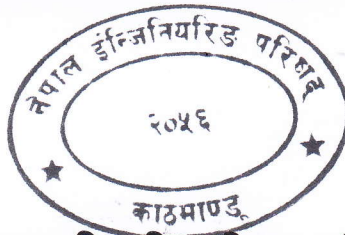 नेपाल इन्जिनियरिङ परिषद
२०५६
काठमाण्डू